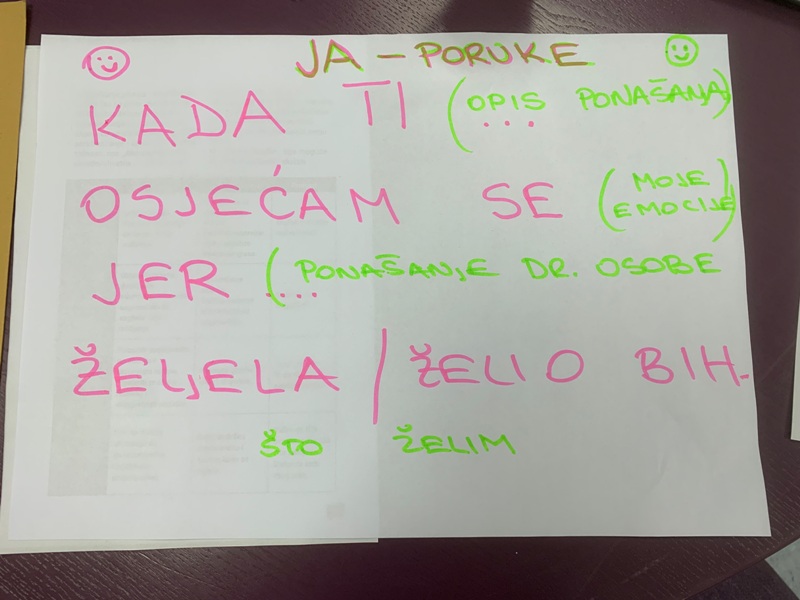 JA - PORUKE
KADA TI (OPIS PONAŠANJA)
...
OSJEĆAM SE (MOJE EMOCIJE)
JER .... (PONAŠANJE DR. OSOBE
ŽELJELA / ŽELIO BIH.
ŠTO ŽELIM